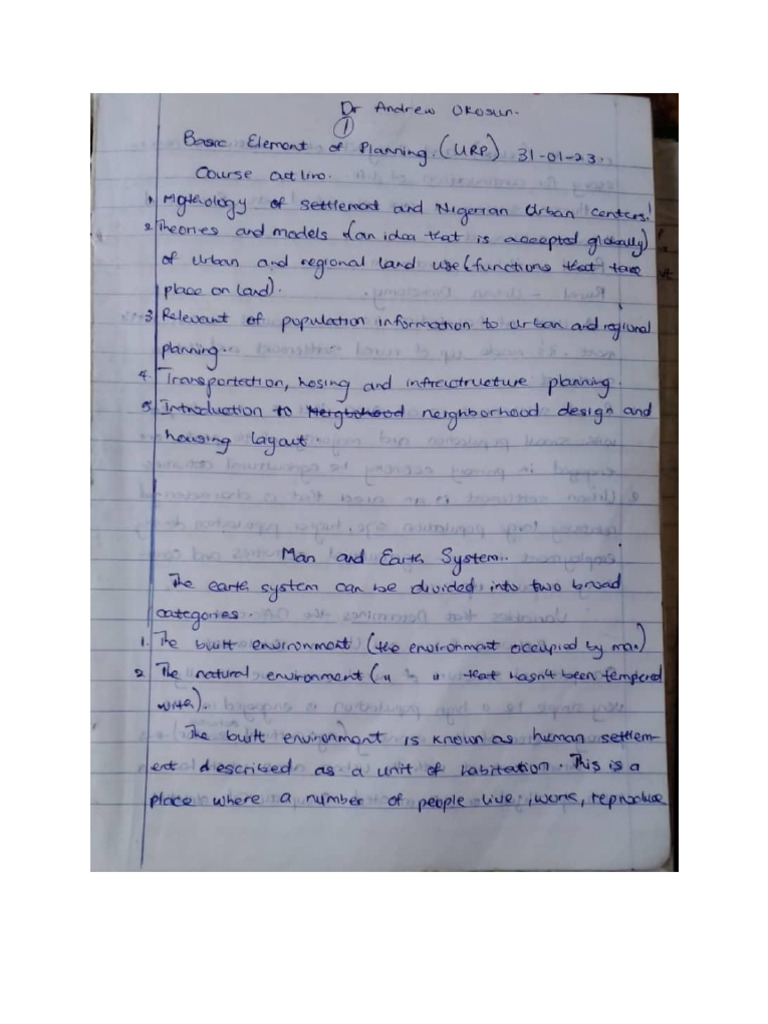 Dr Andrew Okosun.
1
Basic Element of Planning. (URP) 31-01-23.
Course outline.
1. Mythology of settlement and Nigerian Urban centers.
2. Theories and models (an idea that is accepted globally)
of urban and regional land use (functions that take
place on land).
3. Relevant of population information to urban and regional
planning.
4. Transportection, hosing and infrastructure planning.
5. Introduction to Neigbohood neighborhood design and
housing layout.
Man and Earth System.
The earth system can be divided into two broad
categories.
1. The built environment (the environment occupied by man)
2. The natural environment (" " that hasn't been tempered
with).
The built environment is known as human settlem-
ent described as a unit of habitation. This is a
place where a number of people live, work, reproduce